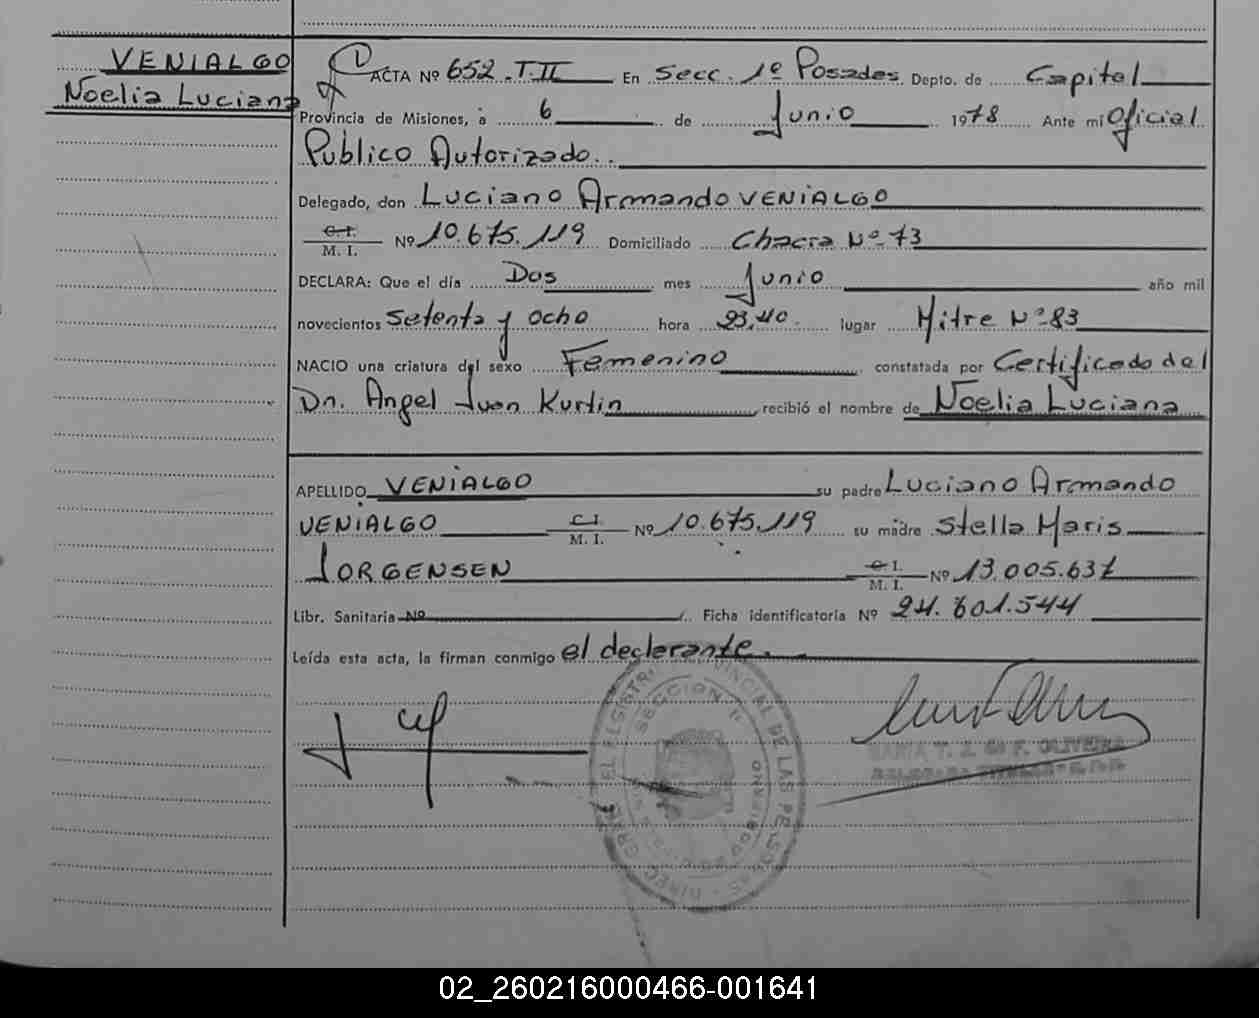 VENIALGO
Noelia Luciana
ACTA Nº 652 T.II En Secc. 1º Posadas Depto. de Capital
Provincia de Misiones, a 6 de Junio 1978 Ante mi Oficial
Publico Autorizado..
Delegado, don Luciano Armando VENIALGO
C.I.
M. I. Nº 10.675.119 Domiciliado Chacra Nº 73
DECLARA: Que el día Dos mes Junio año mil
novecientos setenta y ocho hora 23,40. lugar Mitre Nº 83
NACIO una criatura del sexo Femenino constatada por Certificado del
Dn. Angel Juan Kurtin recibió el nombre de Noelia Luciana
APELLIDO VENIALGO su padre Luciano Armando
VENIALGO C.I. M. I. Nº 10.675.119 su madre Stella Maris
JORGENSEN C.I. M. I. Nº 13.005.637
Libr. Sanitaria Nº Ficha identificatoria Nº 24.601.544
Leída esta acta, la firman conmigo el declarante.
SECCION
PROVINCIAL DE LAS PERSONAS
MARIA T. OLIVEIRA
02_260216000466-001641